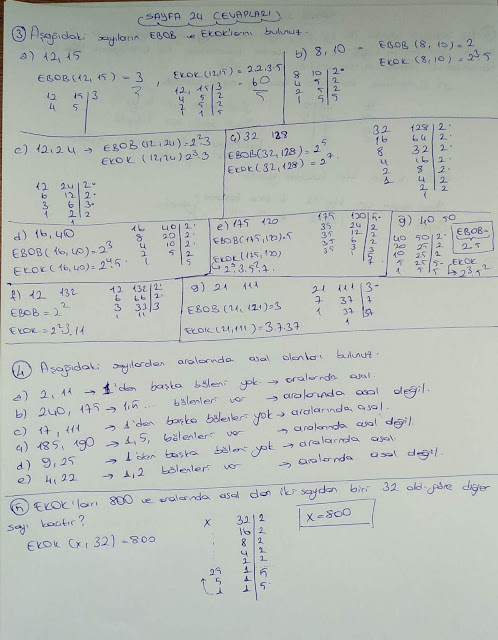 SAYFA 24 CEVAPLARI
3) Aşağıdaki sayıların EBOB ve EKOK'larını bulunuz.
a) 12, 15
EBOB(12, 15) = 3
12 15 | 3
4 5
EKOK(12,15) = 2.2.3.5
= 60
12, 15 | 3
4 5 | 2
2 5 | 2
1 5 | 5
b) 8, 10 → EBOB(8, 10) = 2
EKOK(8, 10) = 2³.5
8 10 | 2•
4 5 | 2
2 5 | 2
1 5 | 5
c) 12, 24 → EBOB(12,24) = 2².3
EKOK(12,24) 2³.3
12 24 | 2•
6 12 | 2•
3 6 | 3•
1 2 | 2
1
ç) 32 128
EBOB(32,128) = 2⁵
EKOK(32,128) = 2⁷
32 128 | 2•
16 64 | 2•
8 32 | 2•
4 16 | 2•
2 8 | 2•
1 4 | 2
2 | 2
1
d) 16, 40
EBOB(16,40) = 2³
EKOK(16,40) = 2⁴.5
16 40 | 2•
8 20 | 2•
4 10 | 2•
2 5 | 2
1 5 | 5
e) 175 120
EBOB(175,120) = 5
EKOK(175,120)
= 2³.3.5².7
175 120 | 5•
35 24 | 2
35 12 | 2
35 6 | 2
35 3 | 3
g) 40 50
EBOB =
2.5
EKOK
2³.5²
40 50 | 2•
20 25 | 2
10 25 | 2
5 25 | 5•
1 5 | 5
f) 12 132
EBOB = 2²
EKOK = 2².3.11
12 132 | 2•
6 66 | 2•
3 33 | 3
1 11
ğ) 21 111
EBOB(21, 121) = 3
EKOK(21,111) = 3.7.37
21 111 | 3•
7 37 | 7
1 37 | 37
1
4) Aşağıdaki sayılardan aralarında asal olanları bulunuz.
a) 2, 11 → 1'den başka böleni yok → aralarında asal.
b) 240, 175 → 1,5... bölenleri var → aralarında asal değil.
c) 17, 111 → 1'den başka bölenleri yok → aralarında asal.
ç) 185, 190 → 1, 5, bölenleri var → aralarında asal değil.
d) 9, 25 → 1'den başka bölenleri yok → aralarında asal.
e) 4, 22 → 1, 2 bölenleri var → aralarında asal değil.
5) EKOK'ları 800 ve aralarında asal olan iki sayıdan biri 32 old. göre diğer
sayı kaçtır?
EKOK (x, 32) = 800
x 32 | 2
16 | 2
8 | 2
4 | 2
2 | 2
25 1 | 5
5 1 | 5
1 1
x = 800